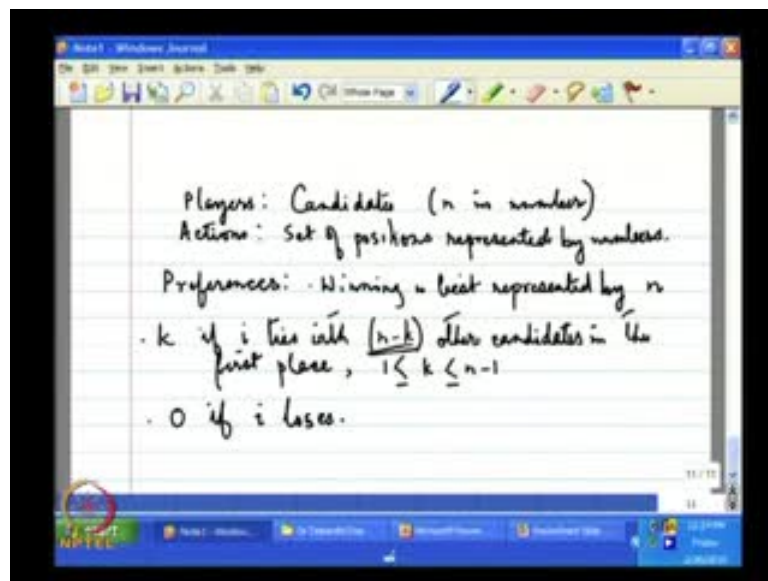 Note1 - Windows Journal
File Edit View Insert Actions Tools Help
Whole Page
Players: Candidates (n in number)
Actions: Set of positions represented by numbers.
Preferences: · Winning is best represented by n
· k if i ties with (n-k) other candidates in the
first place, 1 ≤ k ≤ n-1
· 0 if i loses.
11 / 11
11
start
Note1 - Windows...
NPTEL